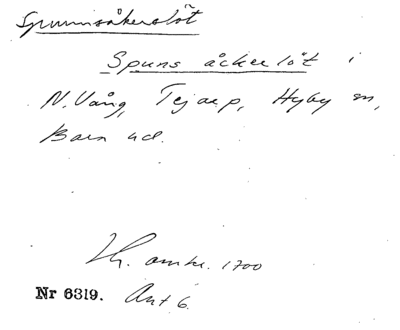 Spunnsåkerslöt
Spuns åckerlöt i
N. Vång, Tejarp, Hyby sn,
Bara hd.
Lh. omkr. 1700
Nr 6319. Ant 6.